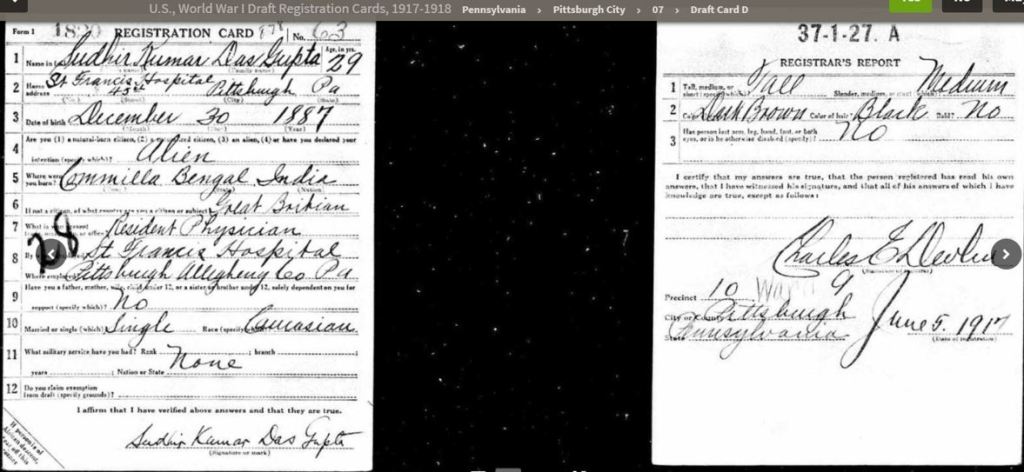 U.S., World War I Draft Registration Cards, 1917-1918 Pennsylvania › Pittsburgh City › 07 › Draft Card D
Form 1 REGISTRATION CARD No. 63
1 Name in Sudhir Kumar Das Gupta Age, in yrs. 29
2 Home address St Francis Hospital 45th Pittsburgh Pa
(No.) (Street) (City) (State)
3 Date of birth December 30 1887
(Month) (Day) (Year)
4 Are you (1) a natural-born citizen, (2) a citizen, (3) an alien, (4) or have you declared your
intention (specify which)? Alien
5 Where were you born? Commilla Bengal India
(State) (Nation)
6 If not a citizen, of what country are you a citizen or subject? Great Britian
7 What is your present Resident Physician
28
8 By St Francis Hospital
Where employed Pittsburgh Allegheny Co Pa
9 Have you a father, mother, wife, child under 12, or a sister or brother under 12, solely dependent on you for
support (specify which)? No
10 Married or single (which) Single Race (specify Caucasian
11 What military service have you had? Rank ; branch
years ; Nation or State None
12 Do you claim exemption
from draft (specify grounds)?
I affirm that I have verified above answers and that they are true.
Sudhir Kumar Das Gupta
(Signature or mark)
37-1-27. A
REGISTRAR'S REPORT
1 Tall, medium, or short (specify which)? Tall Slender, medium, or which)? Medium
2 Color Dark Brown Color of hair? Black Bald? No
3 Has person lost arm, leg, hand, foot, or both
eyes, or is he otherwise disabled (specify)? No
I certify that my answers are true, that the person registered has read his own
answers, that I have witnessed his signature, and that all of his answers of which I have
knowledge are true, except as follows:
Charles E Devlin
(Signature of registrar)
Precinct 10 Ward 9
City or County Pittsburgh
State Pennsylvania June 5. 1917
(Date of registration)